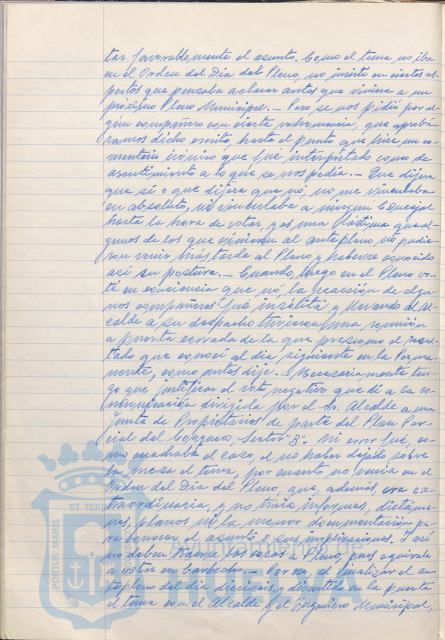 tar favorablemente el asunto. Como el tema no iba
en el Orden del Día del Pleno, no insistí en ciertos as-
pectos que pensaba aclarar antes que viniera a un
próximo Pleno Municipal.- Pero se nos pidió por al-
gún compañero con cierta vehemencia, que aprobá-
ramos dicho escrito, hasta el punto que hice un co-
mentario irónico que fué interpretado como de
asentimiento a lo que se nos pedía.- Que dijera
que sí o que dijera que nó, no me vinculaba
en absoluto, ni vinculaba a ningún Concejal
hasta la hora de votar, y es una lástima que al-
gunos de los que vinieron al antepleno, no pudie-
ran venir más tarde al Pleno y haberse conocido
así su postura.- Cuando, luego en el Pleno vo-
té en conciencia que nó, la reacción de algu-
nos compañeros fué insólita y llevando al Al-
calde a su despacho tuvieron una reunión
a puerta cerrada de la que presumo el resul-
tado que conocí al día siguiente en la Perma-
nente, como antes dije.- Necesariamente ten-
go que justificar el voto negativo que dí a la co-
municación dirigida por el Sr. Alcalde a una
Junta de Propietarios de parte del Plan Par-
cial del Conquero, Sector "B". Mi error fué, co-
mo cuadraba el caso, el no haber dejado sobre
la mesa el tema, por cuanto no venía en el
Orden del Día del Pleno, que, además, era ex-
traordinario, y no traía informes, dictáme-
nes, planos, ni la menor documentación pa-
ra conocer el asunto y sus implicaciones. Y así
no deben traerse las cosas a Pleno, pues equivale
a estar en barbecho.- Por eso, al finalizar el an-
tepleno del día dieciséis, y discutido en la puerta
el tema con el Alcalde y el Ingeniero Municipal,
PORTUS MARIS ET TERRÆ
HUELVA